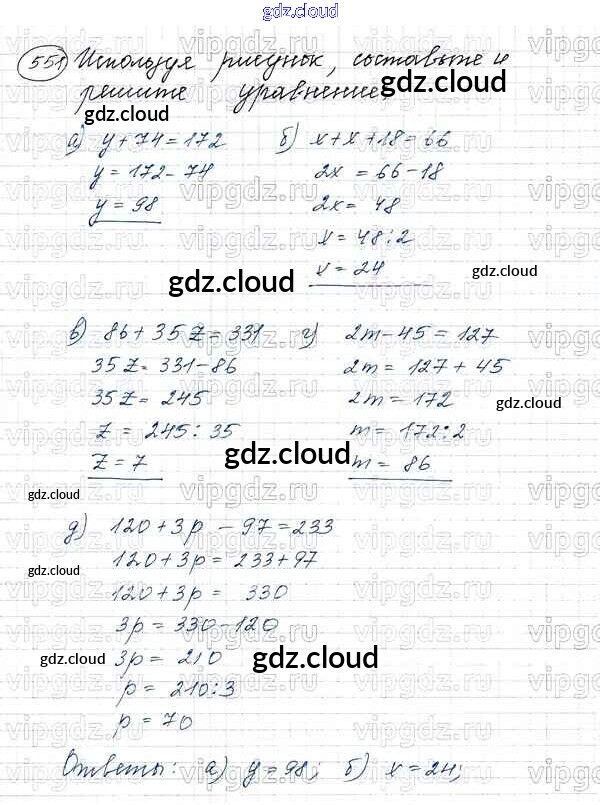 gdz.cloud
551 Используя рисунок, составьте и
решите уравнение.
gdz.cloud
а) y + 74 = 172
y = 172 - 74
y = 98
б) x + x + 18 = 66
2x = 66 - 18
2x = 48
x = 48 : 2
x = 24
gdz.cloud
gdz.cloud
в) 86 + 35z = 331
35z = 331 - 86
35z = 245
z = 245 : 35
z = 7
г) 2m - 45 = 127
2m = 127 + 45
2m = 172
m = 172 : 2
m = 86
gdz.cloud
gdz.cloud
gdz.cloud
д) 120 + 3p - 97 = 233
120 + 3p = 233 + 97
120 + 3p = 330
3p = 330 - 120
3p = 210
p = 210 : 3
p = 70
gdz.cloud
gdz.cloud
gdz.cloud
Ответы: а) y = 98; б) x = 24;
vipgdz.ru